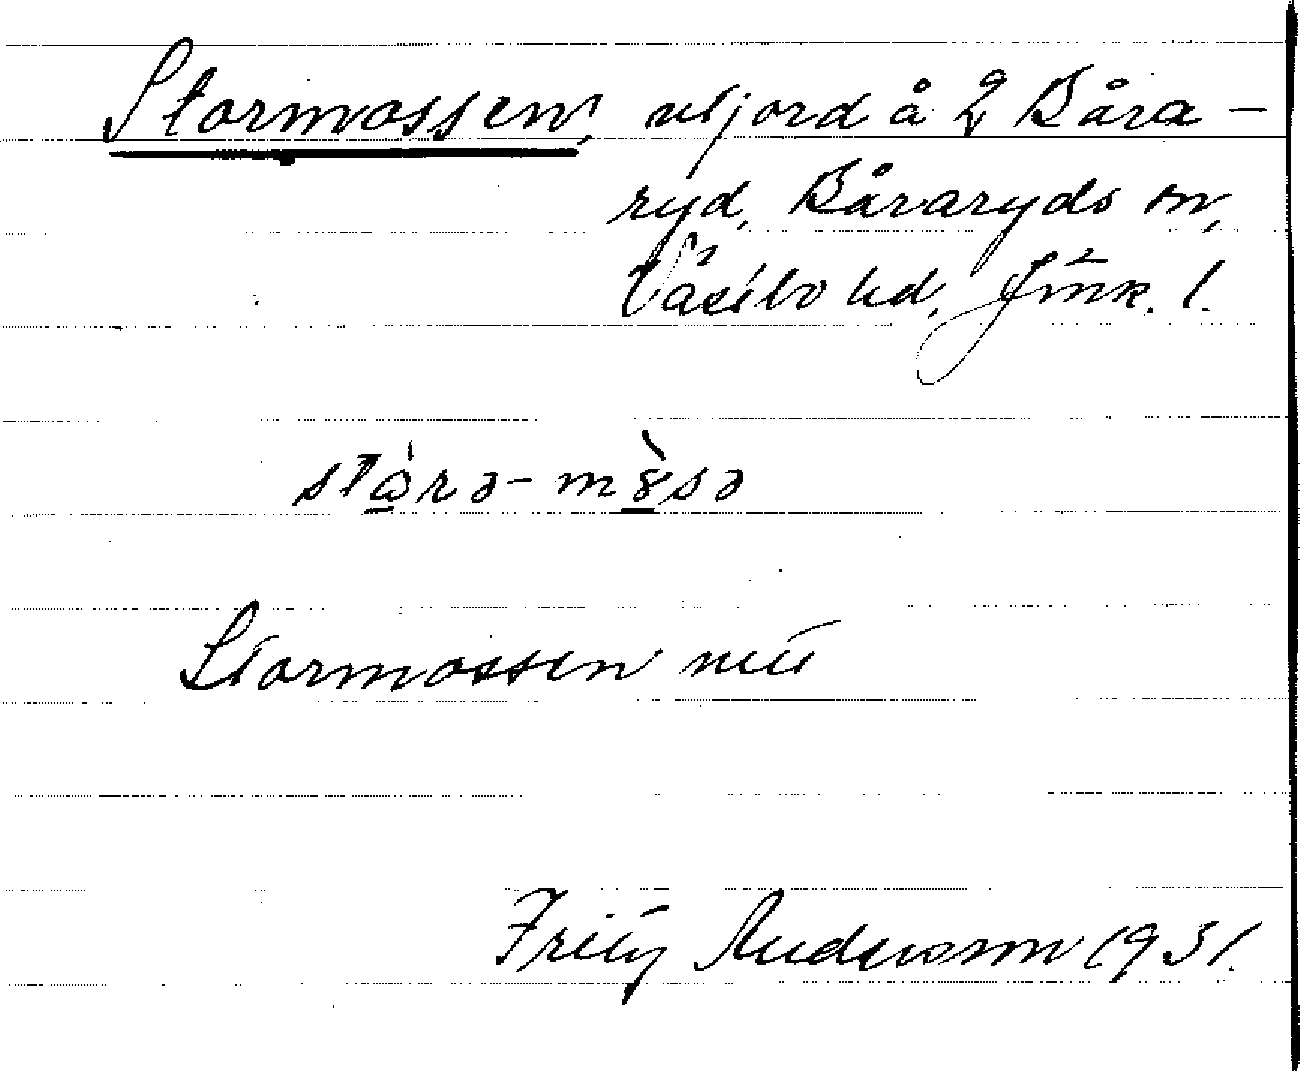 Stormossen, utjord å 2 Båra-
ryd, Båraryds sn,
Västbo hd, Jönk. l.
stɷ̀rə-mɤ̀sə
Stormossen
Fritz Andersson 1931.